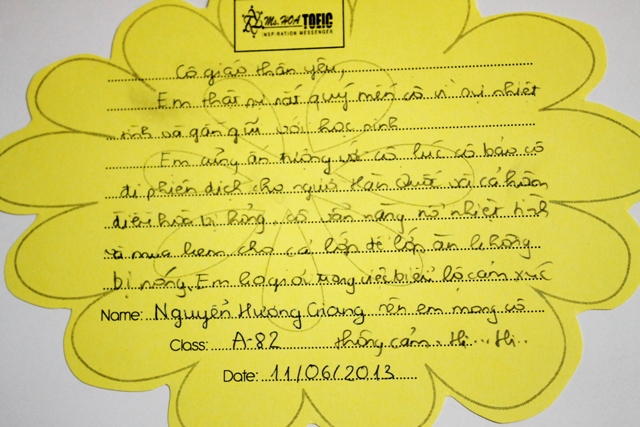 Ms. HOA TOEIC
INSPIRATION MESSENGER
Cô giáo thân yêu,
Em thật sự rất quý mến cô vì sự nhiệt
tình và gần gũi với học sinh
Em cũng ấn tượng với cô lúc cô bảo cô
đi phiên dịch cho người Hàn Quốc và cả hôm
điều hòa bị hỏng, cô vẫn năng nổ nhiệt tình
và mua kem cho cả lớp để lớp ăn không
bị nóng. Em hơi trong việc biểu lộ cảm xúc
Name: Nguyễn Hương Giang nên em mong cô
Class: A-82 thông cảm. Hi... Hi..
Date: 11/06/2013